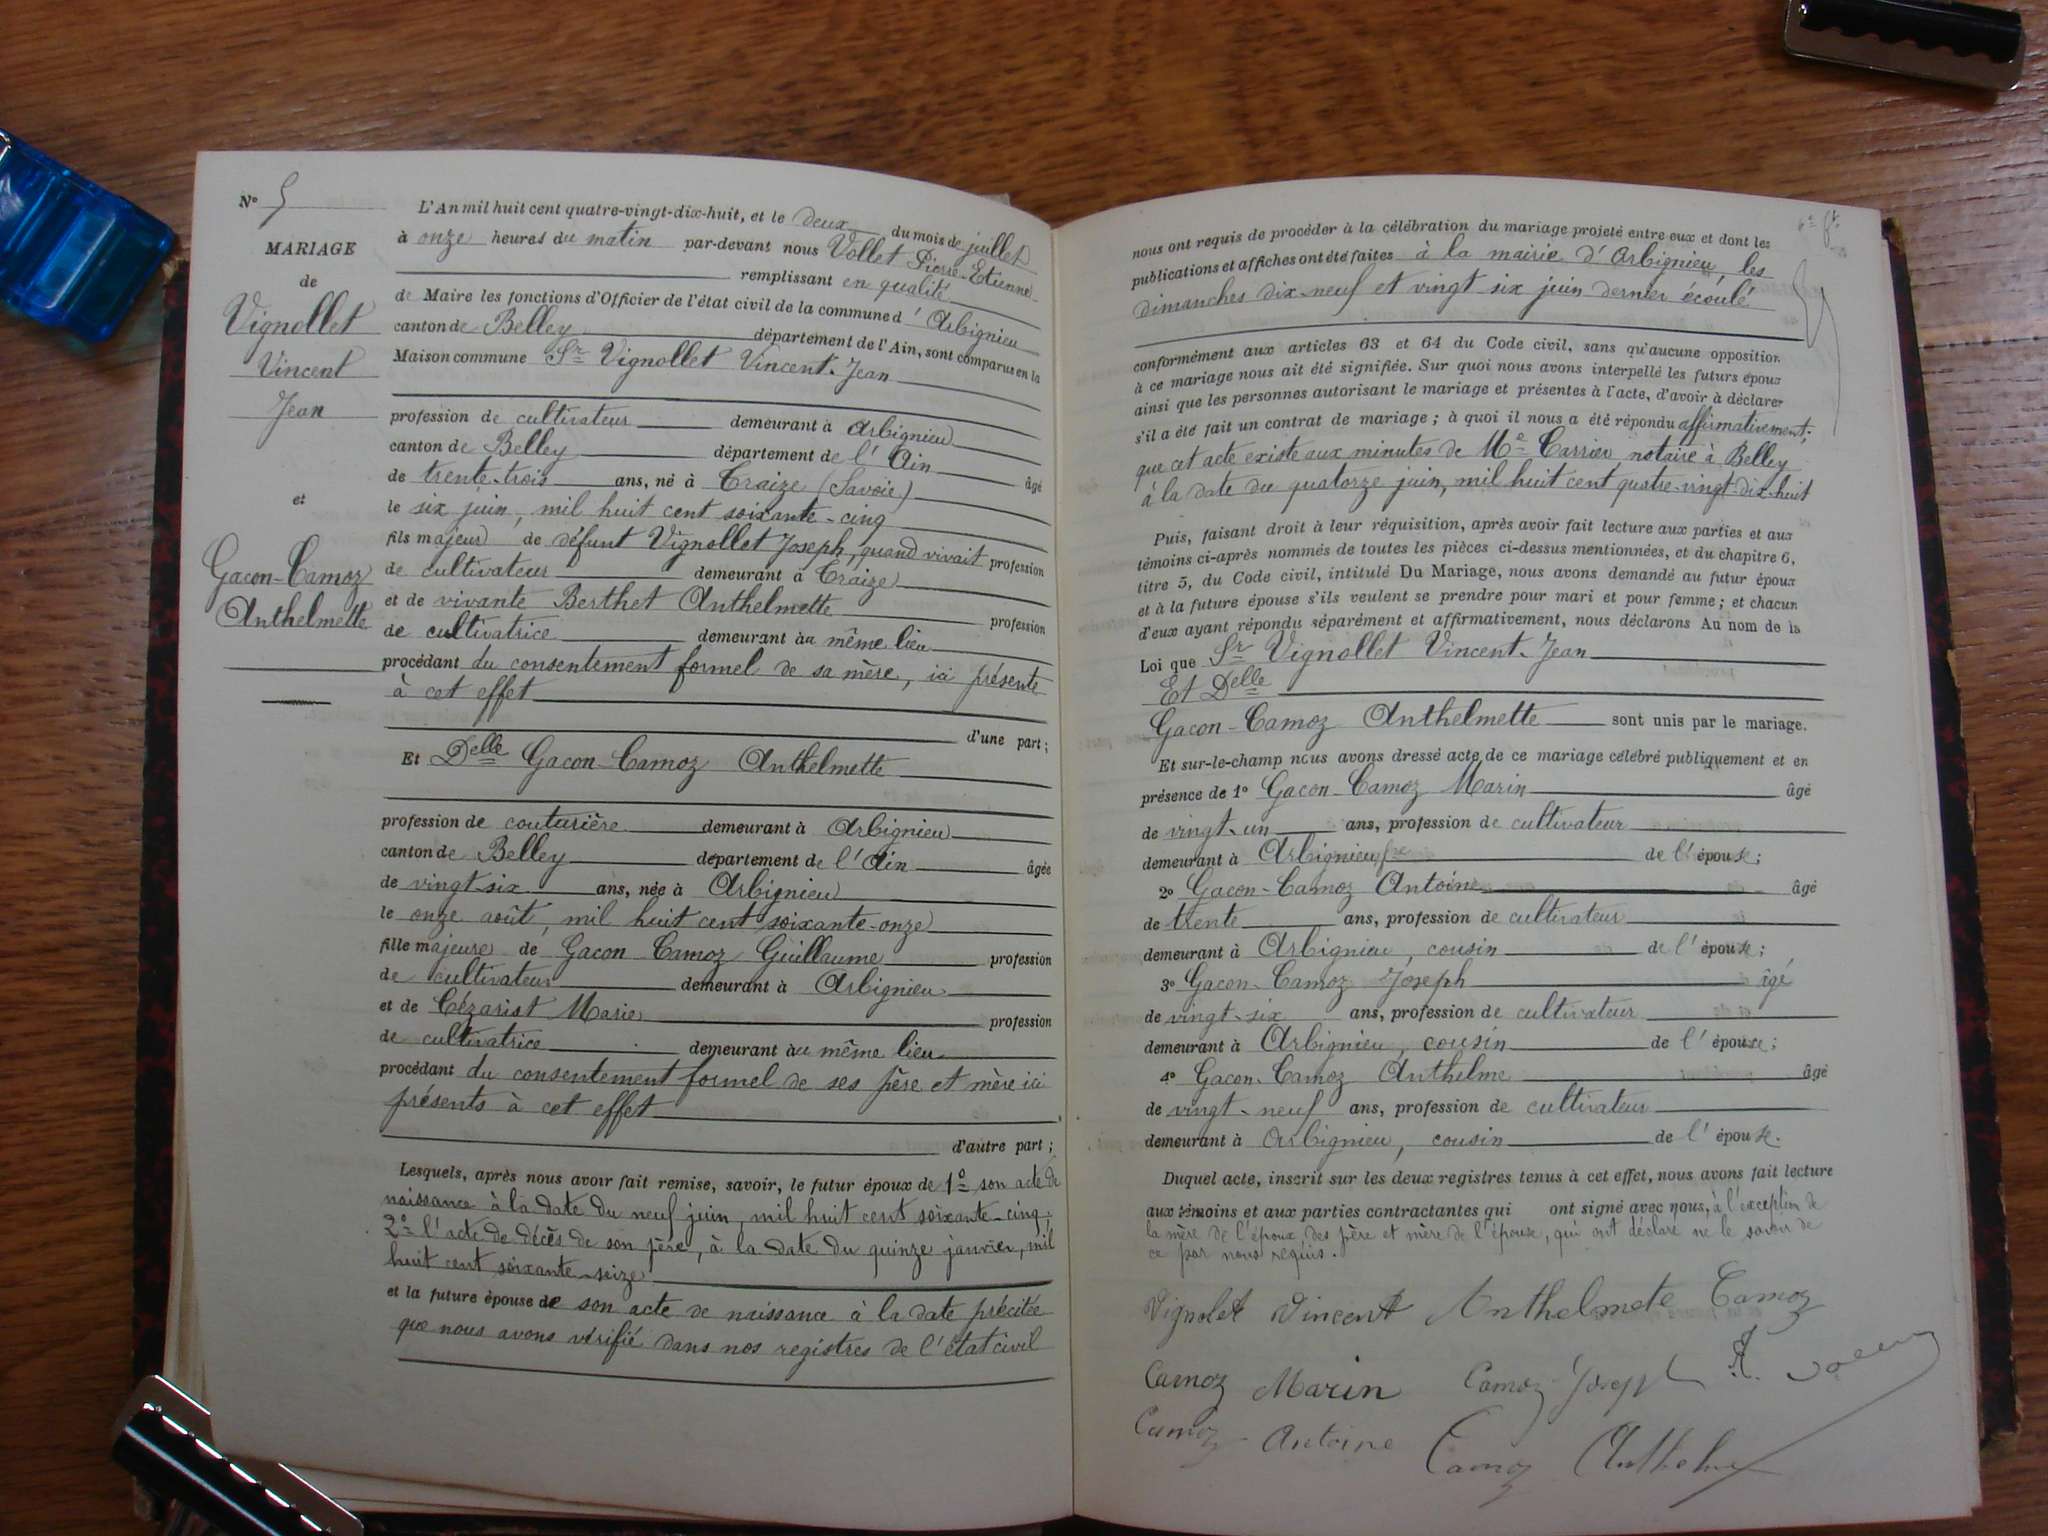 N° 5
MARIAGE
de
Vignollet
Vincent
Jean
et
Gacon-Camoz
Anthelmette
L'An mil huit cent quatre-vingt-dix-huit, et le deux du mois de juillet
à onze heures du matin par-devant nous Vollet Pierre-Etienne
remplissant en qualité
de Maire les fonctions d'Officier de l'état civil de la commune d'Arbignieu
canton de Belley département de l'Ain, sont comparus en la
Maison commune Sr Vignollet Vincent-Jean
profession de cultivateur demeurant à Arbignieu
canton de Belley département de l'Ain
âgé
de trente-trois ans, né à Traize (Savoie)
le six juin, mil huit cent soixante-cinq
fils majeur de défunt Vignollet Joseph, quand vivait profession
de cultivateur demeurant à Traize
et de vivante Berthet Anthelmette profession
de cultivatrice demeurant au même lieu
procédant du consentement formel de sa mère, ici présente
à cet effet
d'une part;
Et Delle Gacon-Camoz Anthelmette
profession de couturière demeurant à Arbignieu
canton de Belley département de l'Ain âgée
de vingt-six ans, née à Arbignieu
le onze août, mil huit cent soixante-onze
fille majeure de Gacon-Camoz Guillaume profession
de cultivateur demeurant à Arbignieu
et de Cézarist Marie profession
de cultivatrice demeurant au même lieu
procédant du consentement formel de ses père et mère ici
présents à cet effet
d'autre part;
Lesquels, après nous avoir fait remise, savoir, le futur époux de 1° son acte de
naissance à la date du neuf juin, mil huit cent soixante-cinq;
2° l'acte de décès de son père, à la date du quinze janvier, mil
huit cent soixante-seize
et la future épouse de son acte de naissance à la date précitée
que nous avons vérifié dans nos registres de l'état civil
nous ont requis de procéder à la célébration du mariage projeté entre eux et dont les
publications et affiches ont été faites à la mairie d'Arbignieu, les
dimanches dix-neuf et vingt six juin dernier écoulé
conformément aux articles 63 et 64 du Code civil, sans qu'aucune opposition
à ce mariage nous ait été signifiée. Sur quoi nous avons interpellé les futurs époux
ainsi que les personnes autorisant le mariage et présentes à l'acte, d'avoir à déclarer
s'il a été fait un contrat de mariage; à quoi il nous a été répondu affirmativement;
que cet acte existe aux minutes de Me Carrier notaire à Belley
à la date du quatorze juin, mil huit cent quatre-vingt-dix-huit
Puis, faisant droit à leur réquisition, après avoir fait lecture aux parties et aux
témoins ci-après nommés de toutes les pièces ci-dessus mentionnées, et du chapitre 6,
titre 5, du Code civil, intitulé Du Mariage, nous avons demandé au futur époux
et à la future épouse s'ils veulent se prendre pour mari et pour femme; et chacun
d'eux ayant répondu séparément et affirmativement, nous déclarons Au nom de la
Loi que Sr Vignollet Vincent-Jean
Et Delle
Gacon-Camoz Anthelmette sont unis par le mariage.
Et sur-le-champ nous avons dressé acte de ce mariage célébré publiquement et en
présence de 1° Gacon-Camoz Marin âgé
de vingt-un ans, profession de cultivateur
demeurant à Arbignieu, fre de l'épouse;
2° Gacon-Camoz Antoine âgé
de trente ans, profession de cultivateur
demeurant à Arbignieu, cousin de l'épouse;
3° Gacon-Camoz Joseph âgé
de vingt-six ans, profession de cultivateur
demeurant à Arbignieu, cousin de l'épouse;
4° Gacon-Camoz Anthelme âgé
de vingt-neuf ans, profession de cultivateur
demeurant à Arbignieu, cousin de l'épouse.
Duquel acte, inscrit sur les deux registres tenus à cet effet, nous avons fait lecture
aux témoins et aux parties contractantes qui ont signé avec nous, à l'exception de
la mère de l'époux, des père et mère de l'épouse, qui ont déclaré ne le savoir de
ce par nous requis.
Vignolet Vincent Anthelmete Camoz
Camoz Marin Camoz Joseph
Camoz Antoine Camoz Anthelme